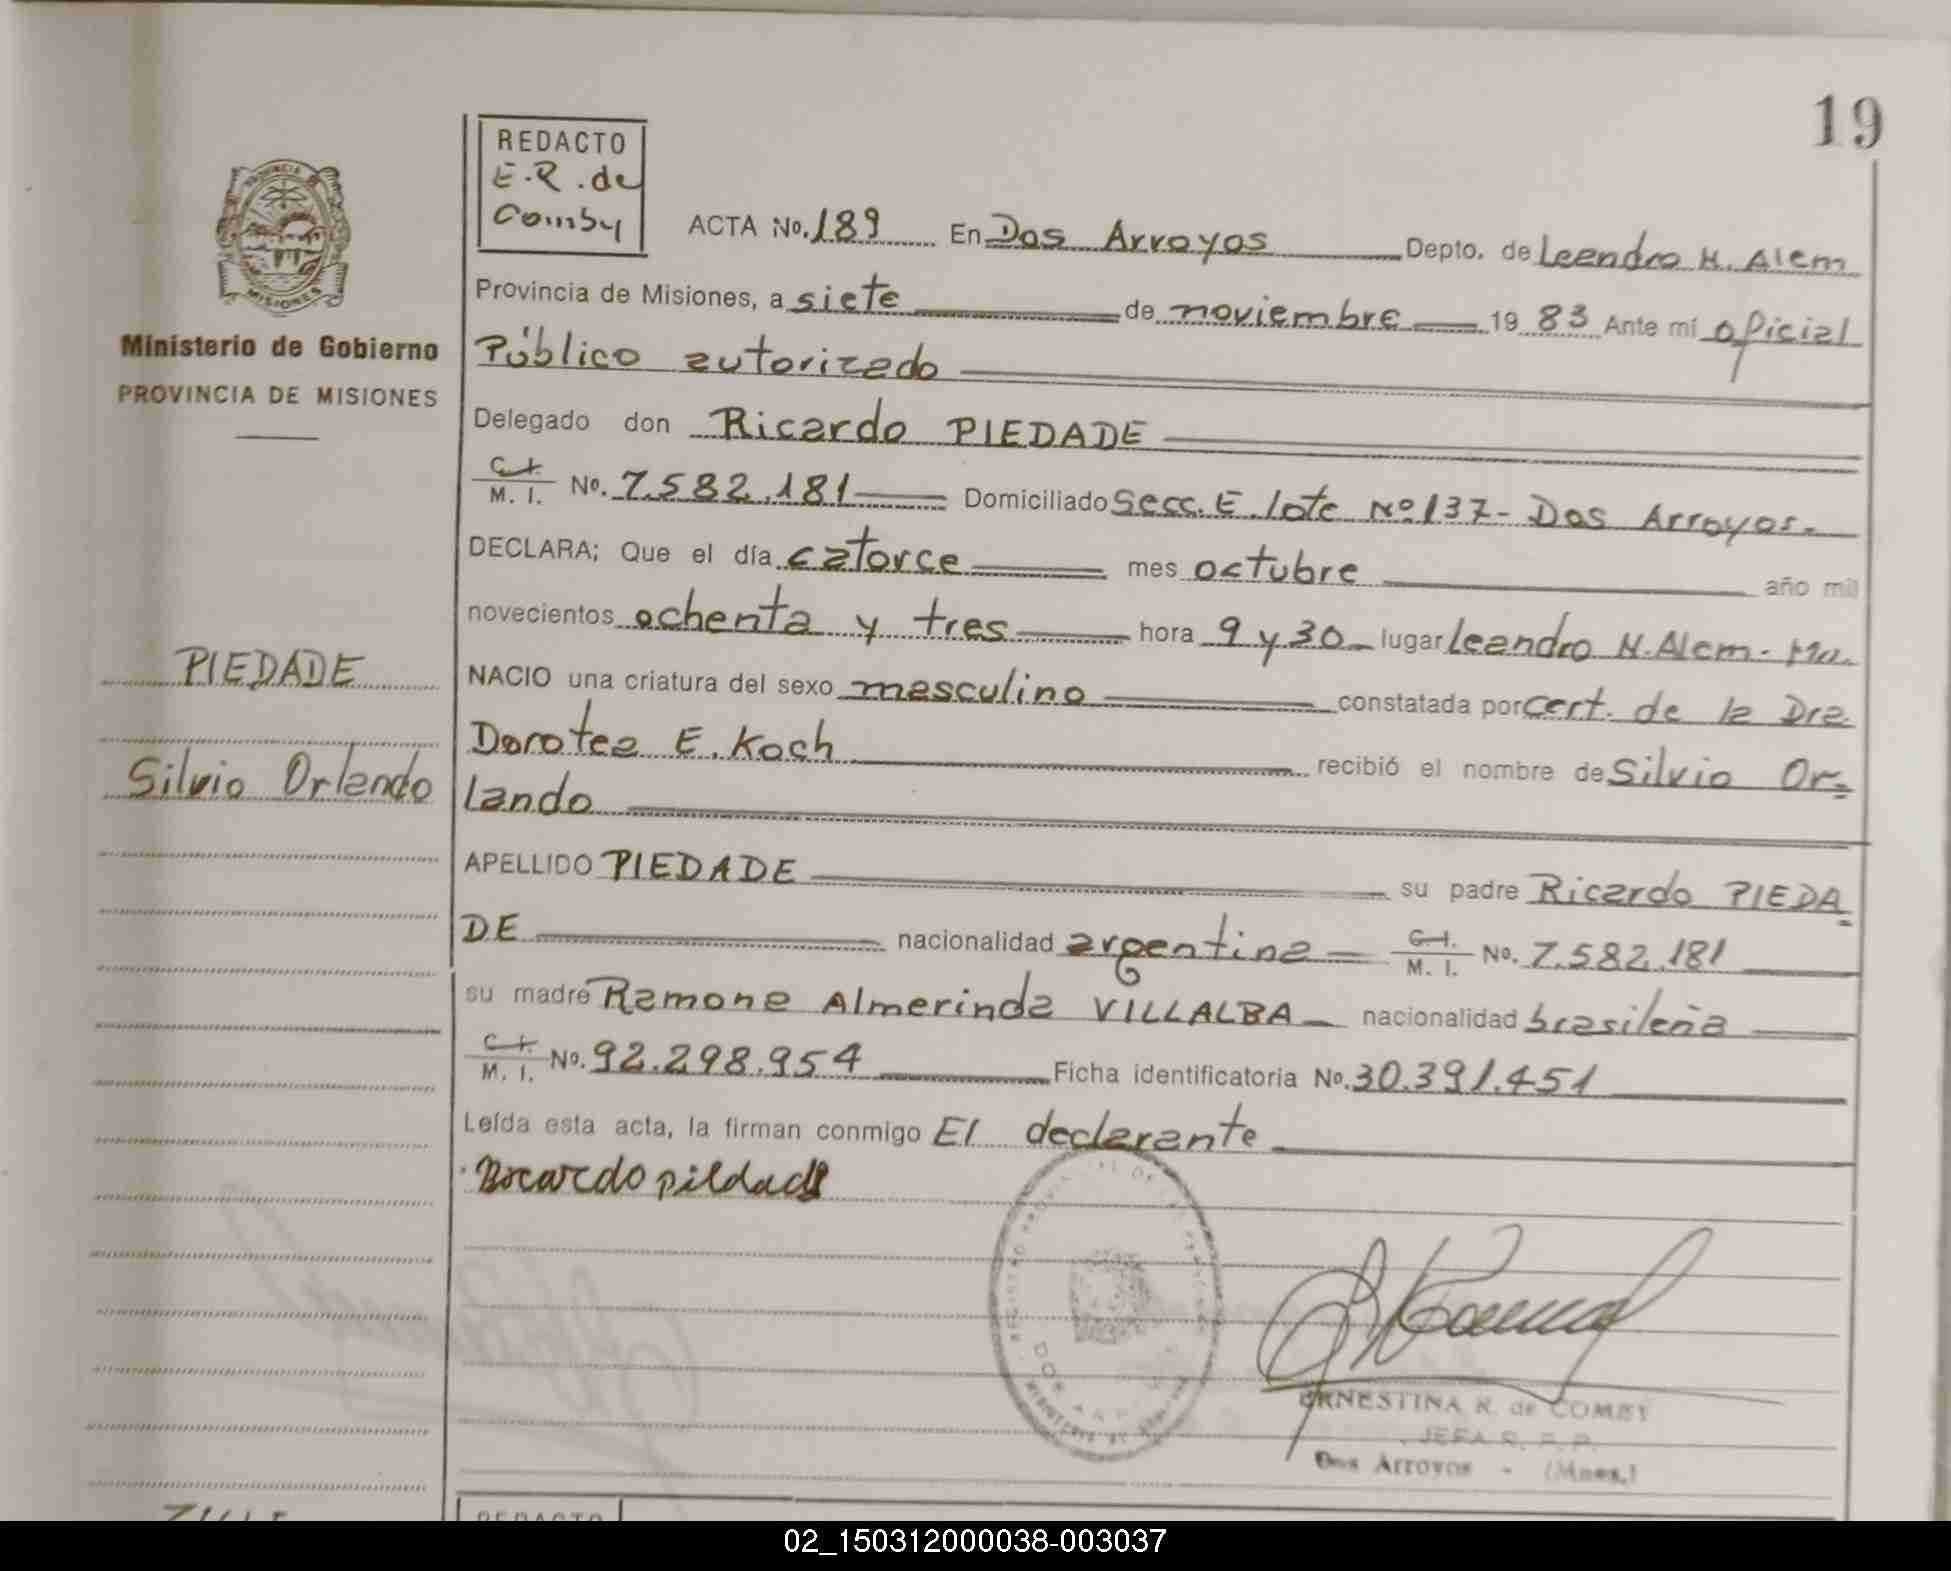 19
REDACTO
E.R. de
Comby
PROVINCIA
MISIONES
Ministerio de Gobierno
PROVINCIA DE MISIONES
PIEDADE
Silvio Orlando
ACTA No. 189 En Dos Arroyos Depto. de Leandro N. Alem
Provincia de Misiones, a siete de noviembre 19 83 Ante mí oficial
Público autorizado
Delegado don Ricardo PIEDADE
C.I. / M. I. No. 7.582.181 Domiciliado Secc. E. lote Nº 137- Dos Arroyos.-
DECLARA; Que el día catorce mes octubre año mil
novecientos ochenta y tres hora 9 y 30 lugar Leandro N. Alem-
NACIO una criatura del sexo masculino constatada por cert. de la Dra.
Dorotea E. Koch recibió el nombre de Silvio Or=
lando
APELLIDO PIEDADE su padre Ricardo PIEDA=
DE nacionalidad argentina C.I. / M. I. No. 7.582.181
su madre Ramona Almerinda VILLALBA nacionalidad brasileña
C.I. / M. I. No. 92.298.954 Ficha identificatoria No. 30.391.451
Leída esta acta, la firman conmigo El declarante
ERNESTINA R. de COMBY
JEFA R. P. P.
Dos Arroyos - (Mnes.)
REDACTO
02_150312000038-003037